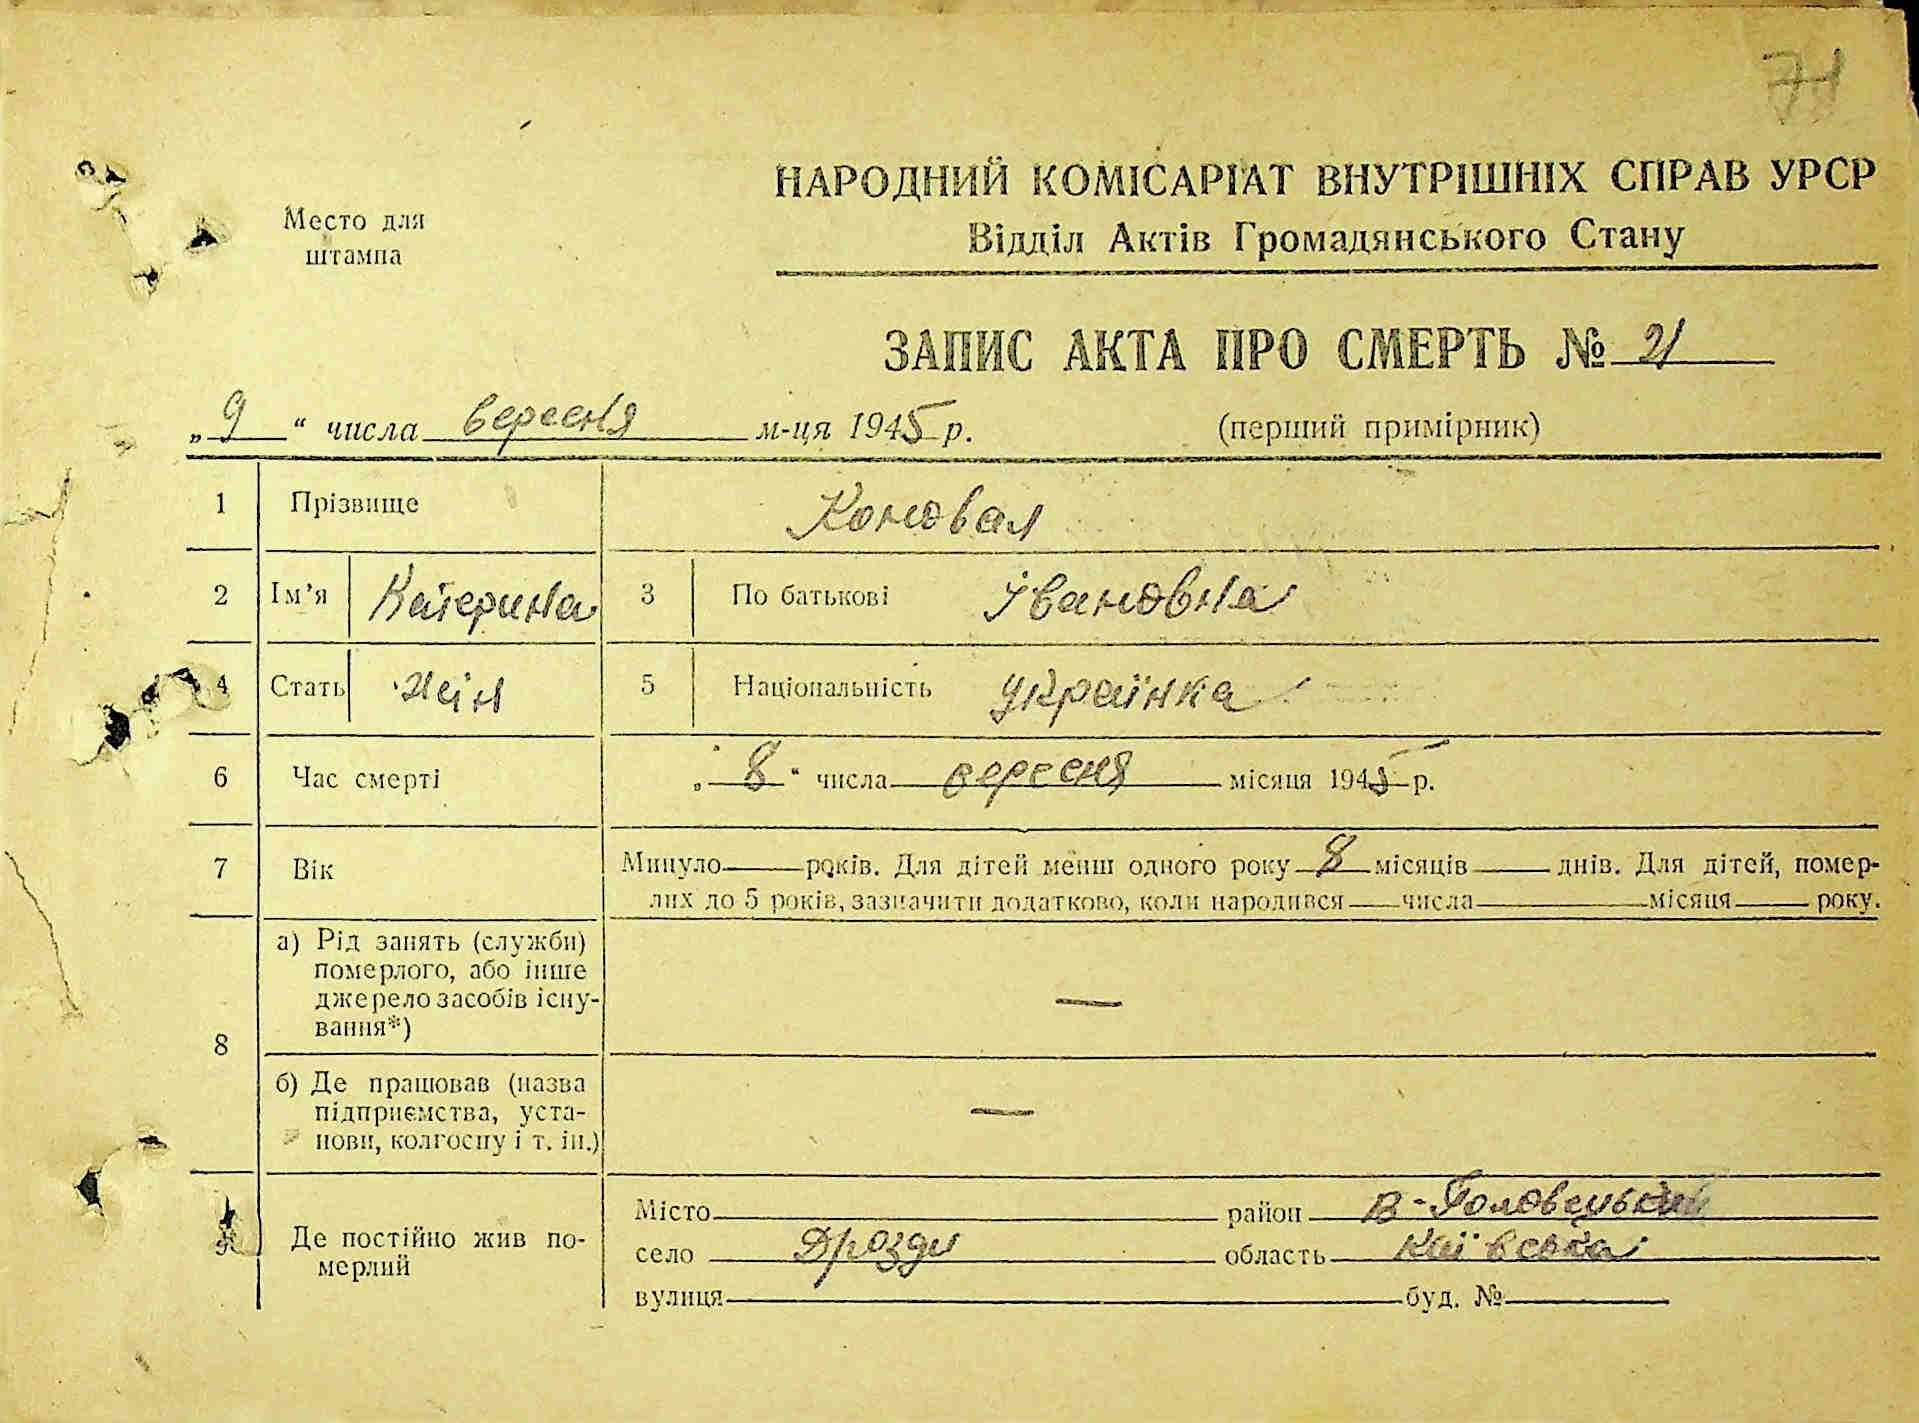 71
НАРОДНИЙ КОМІСАРІАТ ВНУТРІШНІХ СПРАВ УРСР
Место для
штампа
Відділ Актів Громадянського Стану
ЗАПИС АКТА ПРО СМЕРТЬ № 21
„9“ числа вересня м-ця 1945 р. (перший примірник)
1 Прізвище Коновал
2 Ім’я Катерина 3 По батькові Івановна
4 Стать жін 5 Національність українка
6 Час смерті „8“ числа вересня місяця 1945 р.
7 Вік Минуло років. Для дітей менш одного року 8 місяців днів. Для дітей, помер-
лих до 5 років, зазначити додатково, коли народився числа місяця року.
8 а) Рід занять (служби)
померлого, або інше
джерело засобів існу-
вання*) —
б) Де працював (назва
підприємства, уста-
нови, колгоспу і т. ін.) —
Де постійно жив по-
мерлий
Місто район В-Половецький
село Дрозди область Київська
вулиця буд. №